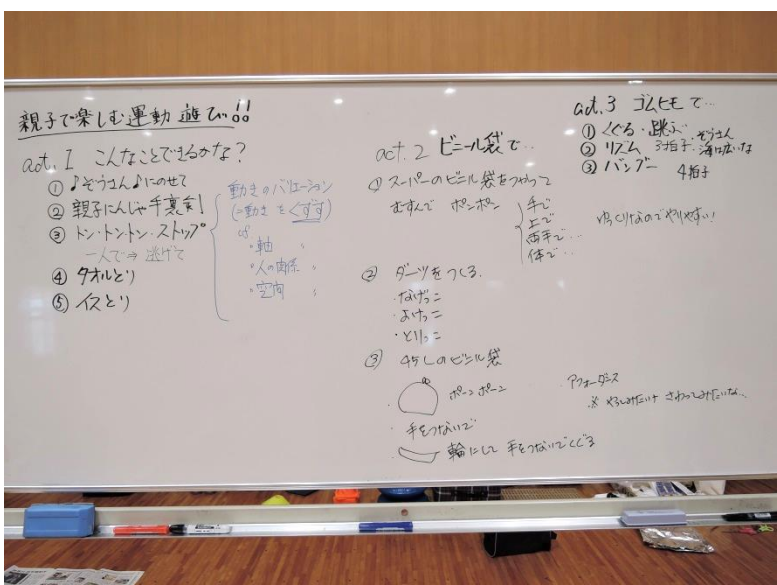 親子で楽しむ運動遊び!!
act. 1 こんなことできるかな?
① ♪ぞうさん♪にのせて
② 親子にんじゃ手裏剣
③ トン・トントン・ストップ
一人で⇒逃げて
④ タオルとり
⑤ イスとり
動きのバリエーション
(=動きをくずす
of
"軸 "
"人の関係 "
"空間 "
act. 2 ビニール袋で…
① スーパーのビニル袋をつかって
むすんで ポンポン
手で
上で
両手で…
体で…
② ダーツをつくる.
・なげっこ
・よけっこ
・とりっこ
③ 45Lのビニル袋
ポーンポーン
・手をつないで
輪にして 手をつないでくぐる
act. 3 ゴムヒモで…
① くぐる・跳ぶ
② リズム 3拍子 ・ぞうさん
・海は広いな
③ バンブー 4拍子
ゆっくりなのでやりやすい!
・アフォーダンス
※ やってみたい さわってみたいな…